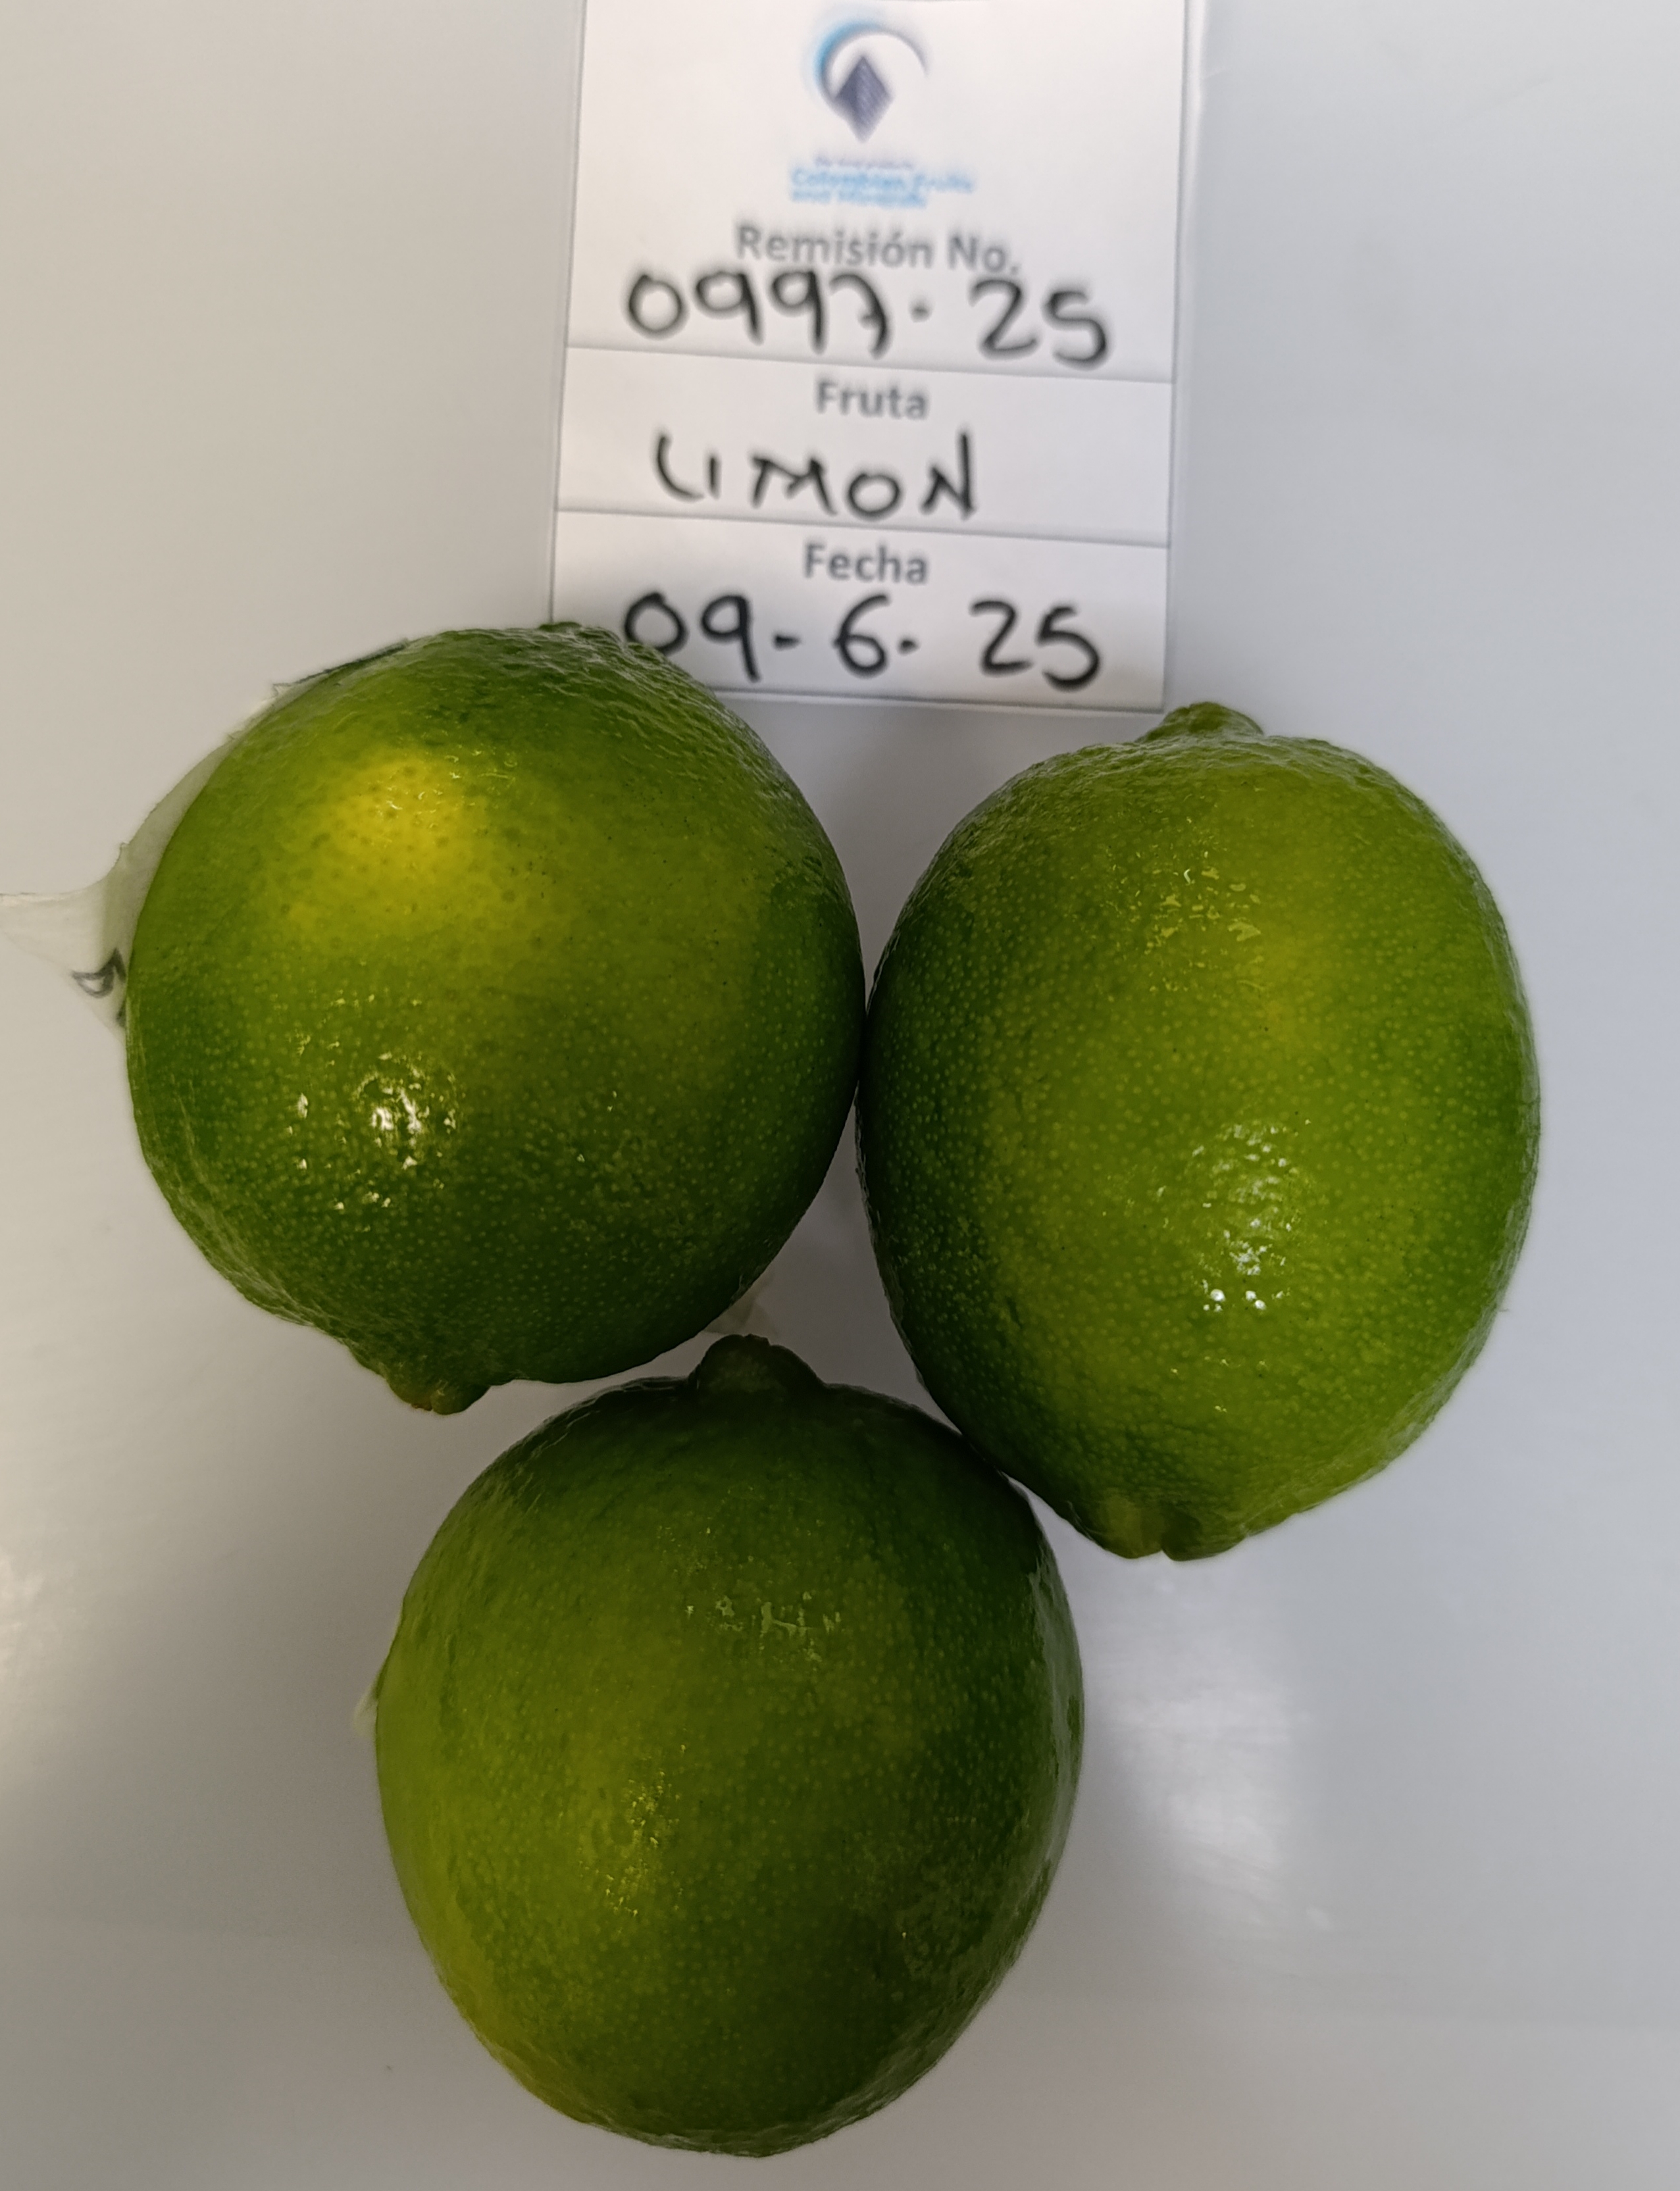 Colombian Fruits
Remisión No.
0997. 25
Fruta
LIMON
Fecha
09-6. 25